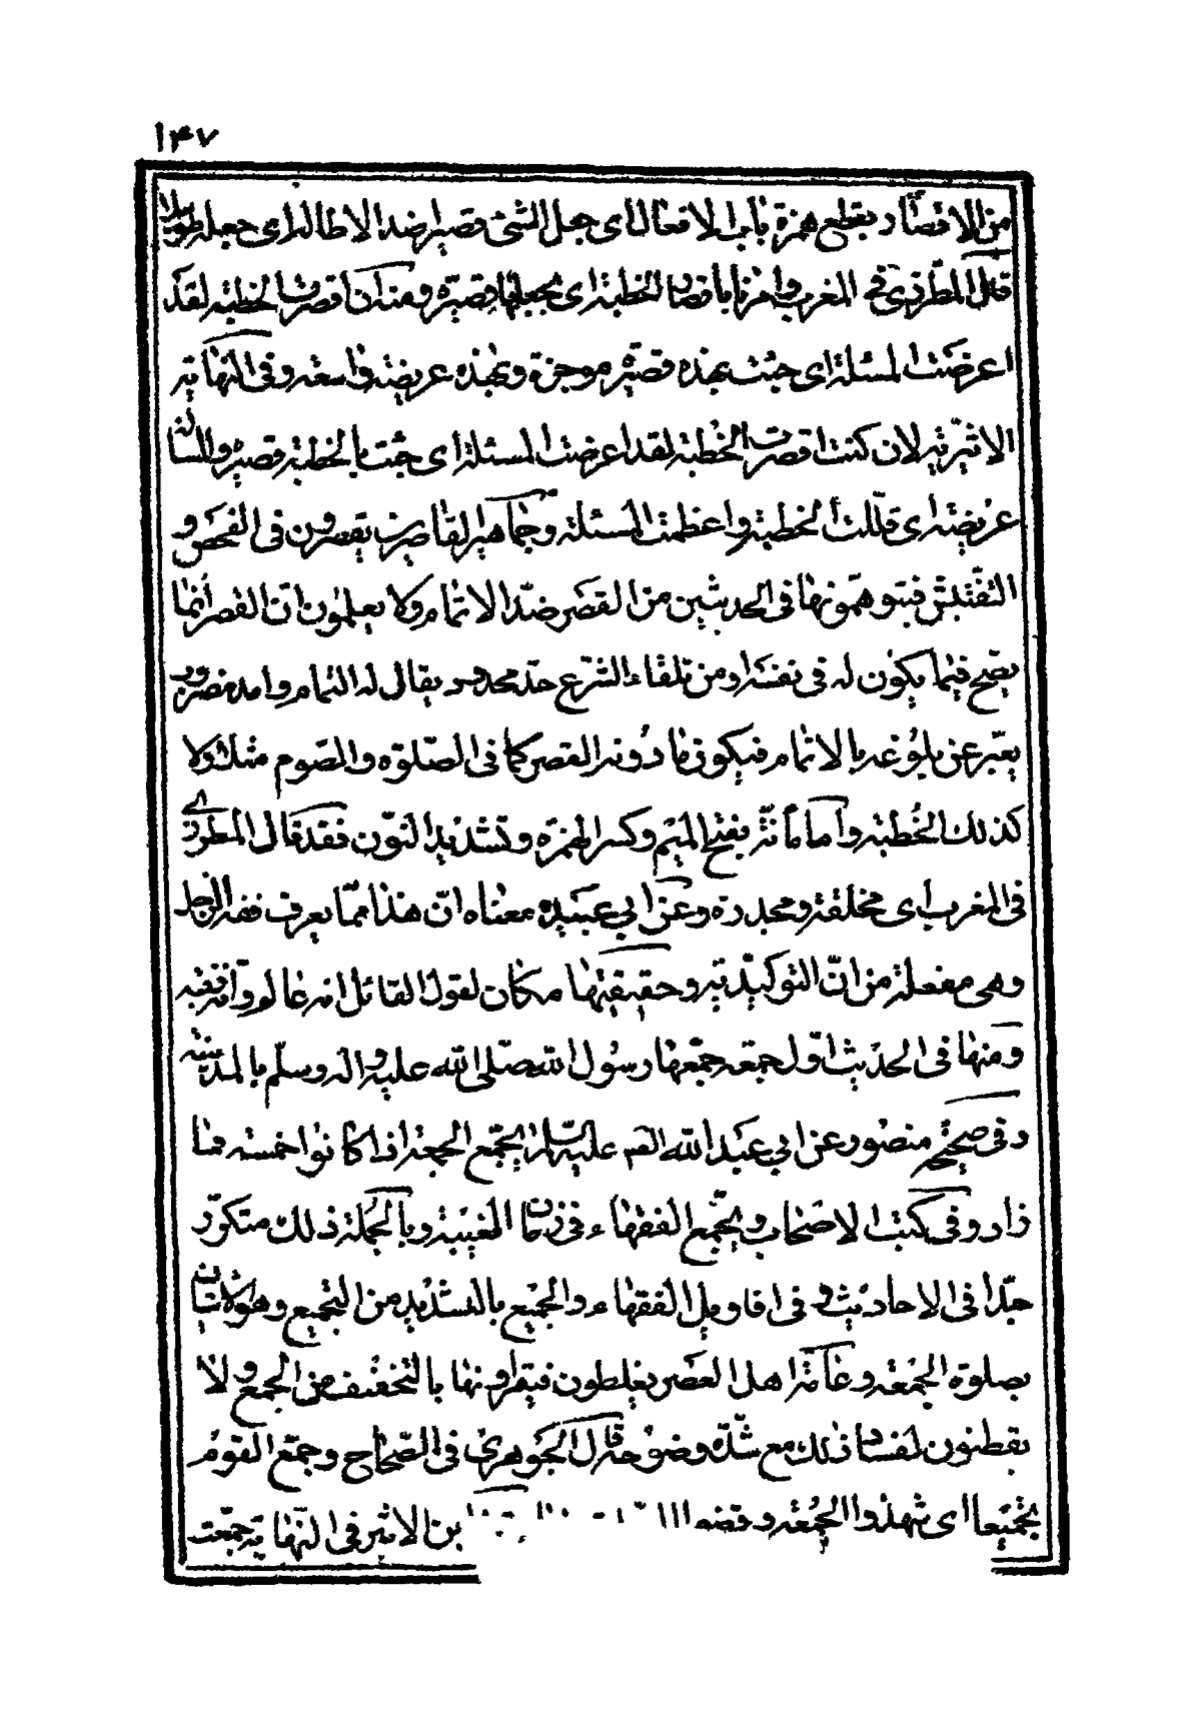 ١۴٧
من الاقصار بقطع همزة باب الافعال اى جعل الشئ قصيرا ضد الاطالة اى جعله طويلا
قال المطرزى فى المغرب وامرنا باقصار الخطبة اى بجعلها قصيرة ومنه ان اقصرت الخطبة لقد
اعرضت المسئلة اى جئت بهذه قصيرة موجزة وبهذه عريضة واسعة وفى النهاية
الاثيرية لان كنت اقصرت الخطبة لقد اعرضت المسئلة اى جئت بالخطبة قصيرة وبالمسألة
عريضة اى قللت الخطبة واعظمت المسئلة وجماهير القاصرين يقصرون فى الفحص و
التفتيش فيتوهمونها فى الحديثين من القصر ضد الاتمام ولا يعلمون ان القصر انما
يصح فيما يكون له فى نفسه او من تلقاء الشرع حد محدود يقال له التمام وامد مضروب
يعبر عن بلوغه بالاتمام فيكون ما دونه القصر كما فى الصلوة والصوم مثلا ولا
كذلك الخطبة واما مئنة بفتح الميم وكسر الهمزة وتشديد النون فقد قال المطرزى
فى المغرب اى مخلقة ومجدرة وعن ابي عبيده معناه ان هذا مما يعرف فقه الرجل
وهى مفعلة من ان التوكيدية وحقيقتها مكان لقول القائل انه عالم وانه فقيه
ومنها فى الحديث اول جمعة جمعها رسول الله صلى الله عليه واله وسلم بالمدينة
وفى صحيح منصور عن ابي عبد الله الصم عليه السلم يجمع الجمعة اذا كانوا خمسة فما
زاد وفى كتب الاصحاب ويجمع الفقهاء فى زمان الغيبة وبالجملة ذلك متكرر
جدا فى الاحاديث و فى اقاويل الفقهاء والجميع بالتشديد من التجميع وهو الاتيان
بصلوة الجمعة وعامة اهل العصر يغلطون فيقراونها بالتخفيف من الجمع و لا
يفطنون لفساد ذلك مع شدة وضوحه قال الجوهرى فى الصحاح وجمع القوم
تجميعا اى شهدوا الجمعة و بن الاثير فى النهاية جمعت